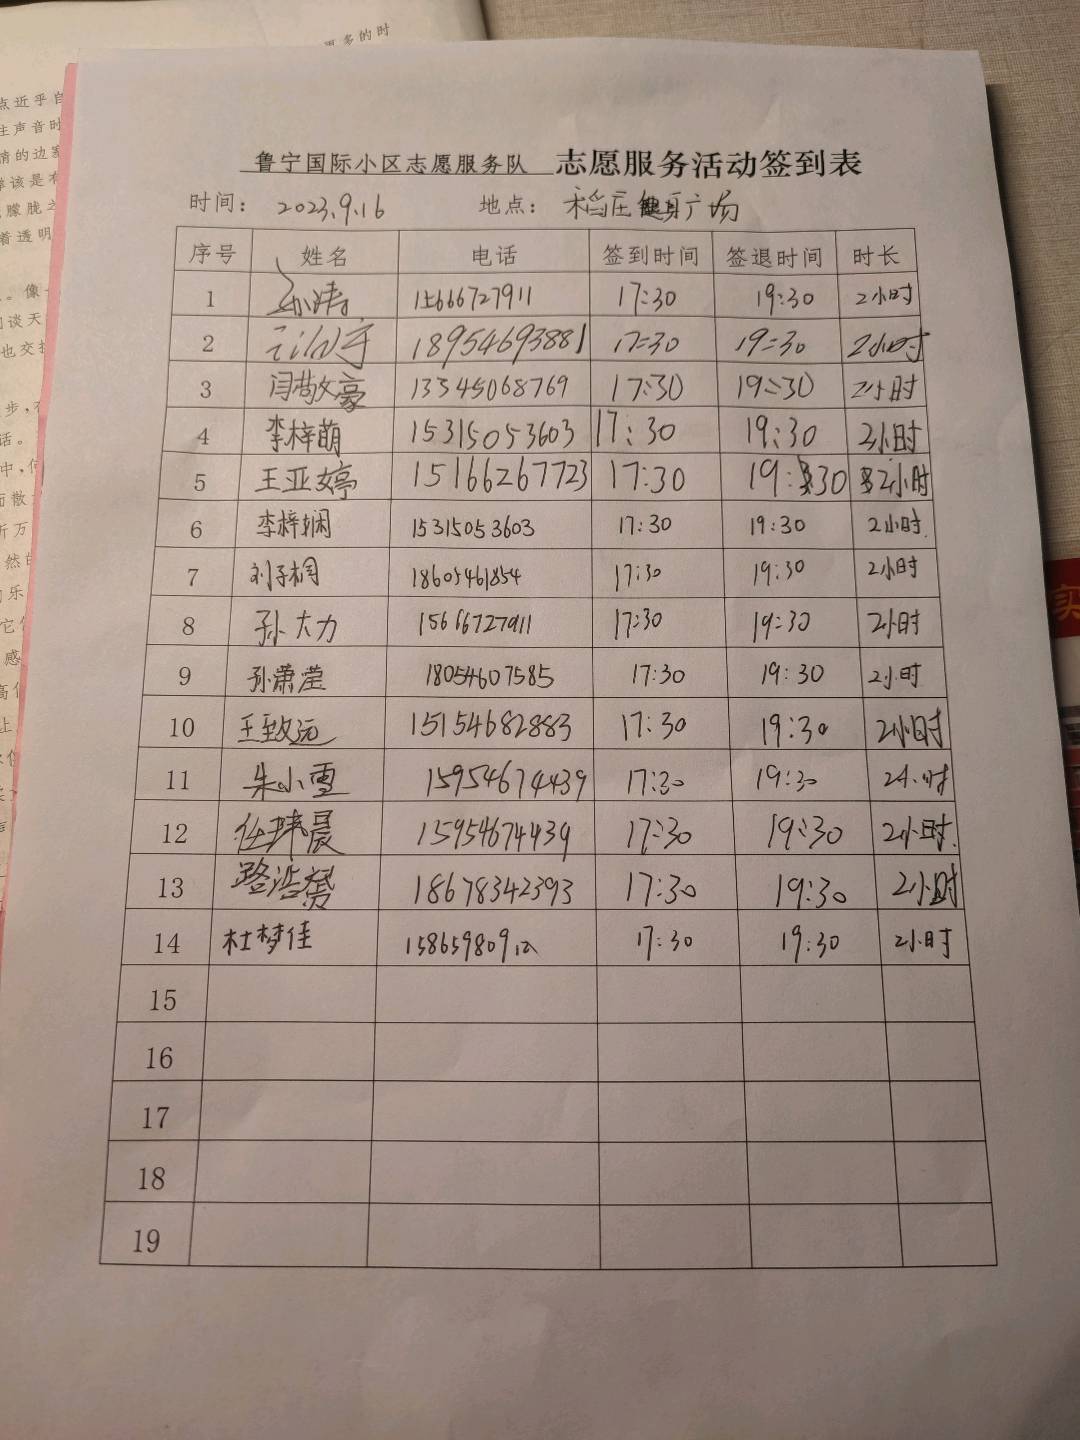 更多的时
点近乎自
生声音时
情的边
该是有
朦胧之
着透明
鲁宁国际小区志愿服务队 志愿服务活动签到表
时间： 2023.9.16 地点： 稻庄健身广场
序号 姓名 电话 签到时间 签退时间 时长
1 孙涛 15666727911 17:30 19:30 2小时
2 18954693881 17:30 19:30 2小时
3 闫敬豪 13345068769 17:30 19:30 2小时
4 李梓萌 15315053603 17:30 19:30 2小时
5 王亚婷 15166267723 17:30 19:30 2小时
6 李梓娴 15315053603 17:30 19:30 2小时.
7 刘子桐 18605461854 17:30 19:30 2小时
8 孙大力 15666727911 17:30 19:30 2小时
9 孙萧滢 18054607585 17:30 19:30 2小时
10 王致远 15154682883 17:30 19:30 2小时
11 朱小雪 15954674439 17:30 19:30 2小时
12 任玮晨 15954674439 17:30 19:30 2小时.
13 路浩赟 18678342393 17:30 19:30 2小时
14 杜梦佳 17:30 19:30 2小时
15
16
17
18
19